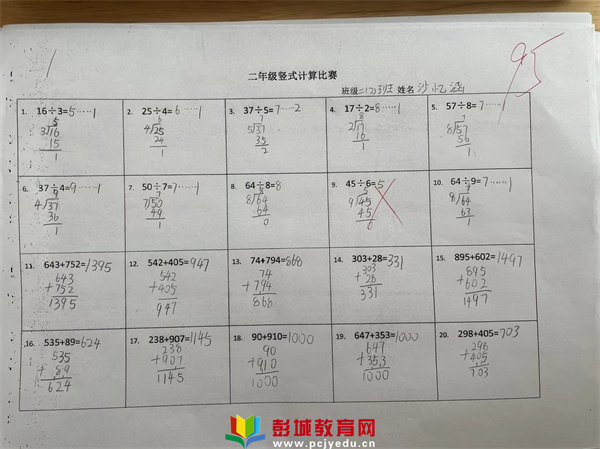 1
95
二年级竖式计算比赛
班级二(2)班 姓名沙忆涵
1. 16÷3=5……1
5
3 16
15
1
2. 25÷4=6……1
6
4 25
24
1
3. 37÷5=7……2
7
5 37
35
2
4. 17÷2=8……1
8
2 17
16
1
5. 57÷8=7……1
7
8 57
56
1
6. 37÷4=9……1
9
4 37
36
1
7. 50÷7=7……1
7
7 50
49
1
8. 64÷8=8
8
8 64
64
0
9. 45÷6=5
5
9 45
45
0
10. 64÷9=7……1
7
9 64
63
1
11. 643+752=1395
643
+752
1395
12. 542+405=947
542
+405
947
13. 74+794=868
74
+794
868
14. 303+28=331
303
+28
331
15. 895+602=1497
895
+602
1497
16. 535+89=624
535
+89
624
17. 238+907=1145
238
+907
1145
18. 90+910=1000
90
+910
1000
19. 647+353=1000
647
+353
1000
20. 298+405=703
298
+405
703
彭城教育网
www.pcjyedu.cn